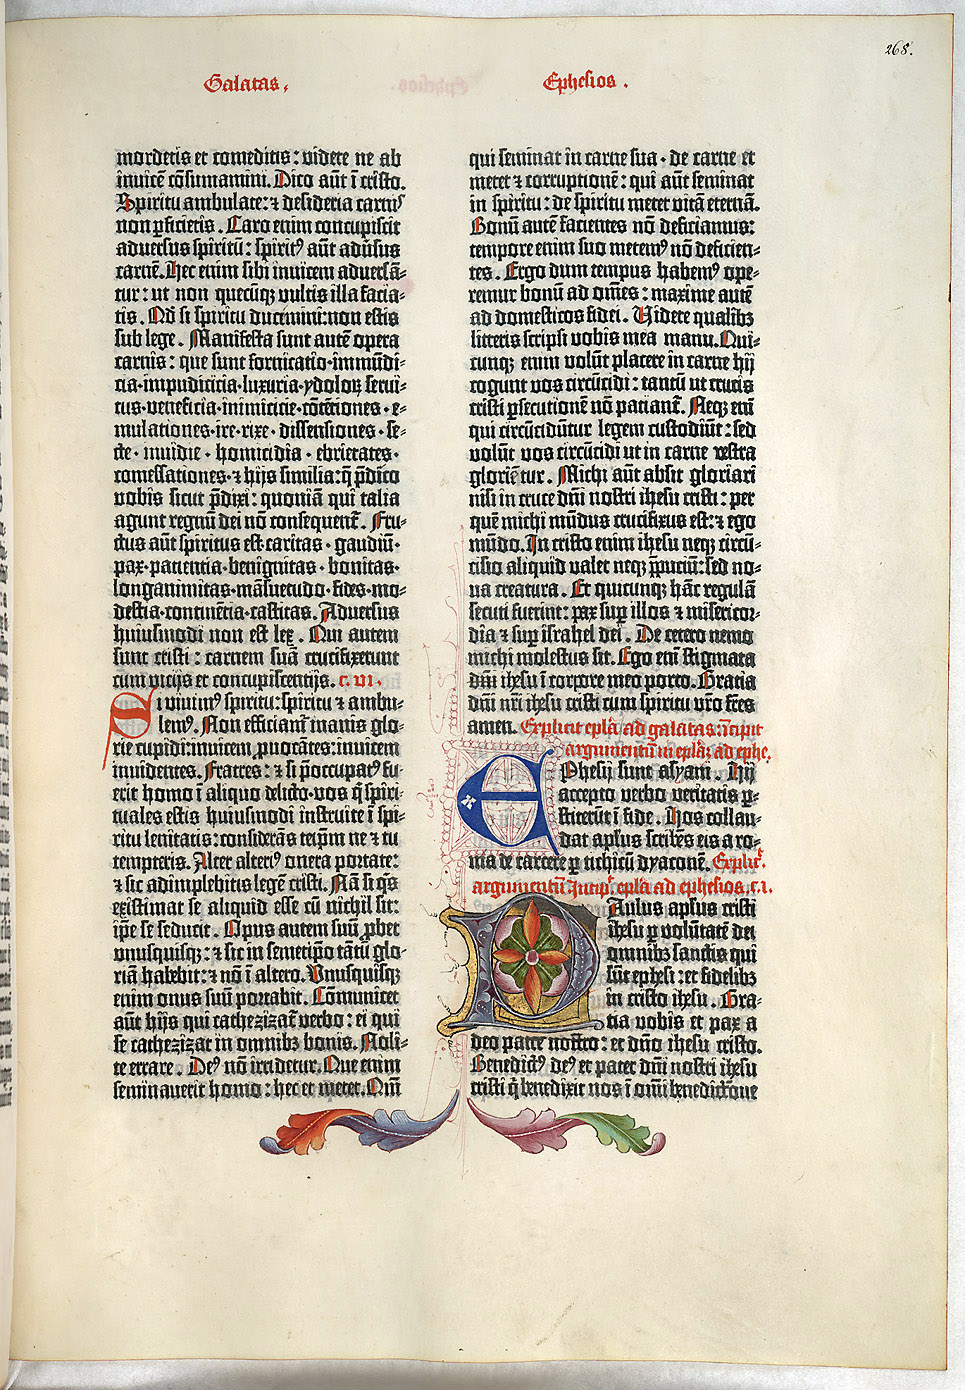 268.
Galatas.
Ephesios.
mordetis et comeditis: videte ne ab
invicē cōsumamini. Dico aūt ī cristo.
Spiritu ambulate: ⁊ desideria carnis
non ꝑficietis. Caro enim concupiscit
adversus spiritū: spiritꝰ aūt adv̄sus
carnē. Hec enim sibi invicem adversā-
tur: ut non quecūqꝫ vultis illa facia-
tis. Qd̄ si spiritu ducimini: non estis
sub lege. Manifesta sunt autē opera
carnis: que sunt fornicatio·immūdi-
cia·impudicicia·luxuria·ydoloꝝ servi-
tus·veneficia·inimicicie·cōtētiones·e-
mulationes·ire·rixe·dissensiones·se-
cte·invidie·homicidia·ebrietates·
comessationes·⁊ hijs similia: q̄ p̄dico
vobis sicut p̄dixi: quoniā qui talia
agunt regnū dei nō consequent̄. Fru-
ctus aūt spiritus est·caritas·gaudiū·
pax·patientia·benignitas·bonitas·
longanimitas·māsuetudo·fides·mo-
destia·continētia·castitas. Adversus
huiusmodi non est lex. Qui autem
sunt cristi: carnem suā crucifixerunt
cum vicijs et concupiscentijs. c. vi.
Si vivimꝰ spiritu: spiritu ⁊ ambu-
lemꝰ. Non efficiamī inanis glo-
rie cupidi: invicem ꝓvocātes: invicem
invidentes. Fratres: ⁊ si p̄occupatꝰ fu-
erit homo ī aliquo delicto·vos q̄ spiri-
tuales estis huiusmodi instruite ī spi-
ritu lenitatis: considerās teip̄m ne ⁊ tu
tempteris. Alter alteriꝰ onera portate:
⁊ sic adimplebitis legē cristi. Nā si q̄s
existimat se aliquid esse cū nichil sit:
ip̄e se seducit. Opus autem suū ꝓbet
unusquisqꝫ: ⁊ sic in semetip̄o tātū glo-
riā habebit: ⁊ nō ī altero. Unusquisqꝫ
enim onus suū portabit. Cōmunicet
aūt hijs qui cathezizat̄ verbo: ei qui
se cathezizat in omnibꝫ bonis. Noli-
te errare. Deꝰ nō irridetur. Que enim
seminaverit homo: hec et metet. Qm̄
qui seminat in carne sua·de carne et
metet ⁊ corruptionē: qui aūt seminat
in spiritu: de spiritu metet vitā eternā.
Bonū autē facientes nō deficiamus:
tempore enim suo metemꝰ nō deficien-
tes. Ergo dum tempus habemꝰ ope-
remur bonū ad om̄es: maxime autē
ad domesticos fidei. Videte qualibꝫ
litteris scripsi vobis mea manu. Qui-
cunqꝫ enim volūt placere in carne hij
cogunt vos circūcidi: tantū ut crucis
cristi ꝑsecutionē nō paciant̄. Neqꝫ eni
qui circūcidūtur legem custodiūt: sed
volūt vos circūcidi ut in carne vestra
gloriētur. Michi aūt absit gloriari
nisi in cruce dn̄i nostri ihesu cristi: per
quē michi mūdus crucifixus est: ⁊ ego
mūdo. In cristo enim ihesu neqꝫ circū-
cisio aliquid valet neqꝫ p̄puciū: sed no-
va creatura. Et quicunqꝫ hāc regulā
secuti fuerint: pax suꝑ illos ⁊ misericor-
dia ⁊ suꝑ israhel dei. De cetero nemo
michi molestus sit. Ego eni stigmata
dn̄i ihesu ī corpore meo porto. Gratia
dn̄i nr̄i ihesu cristi cum spiritu vr̄o fr̄es
amen. Explicit epl̄a ad galatas: īcipit
argumentū ī epl̄aꝫ ad ephe.
Ephesij sunt asyani. Hij
accepto verbo veritatis ꝑ-
stiterūt ī fide. Hos collau-
dat apl̄us scribēs eis a ro-
ma de carcere ꝑ tithicū dyaconē. Explic̄.
argumentū Incip̄. epl̄a ad ephesios. c. i.
Paulus apl̄us cristi
ihesu ꝑ volūtatē dei
omnibꝫ sanctis qui
sūt ephesi: et fidelibꝫ
in cristo ihesu. Gra-
tia vobis et pax a
deo patre nostro: et dn̄o ihesu cristo.
Benedictꝰ deꝰ et pater dn̄i nostri ihesu
cristi q̄ benedixit nos ī om̄i benedictōne